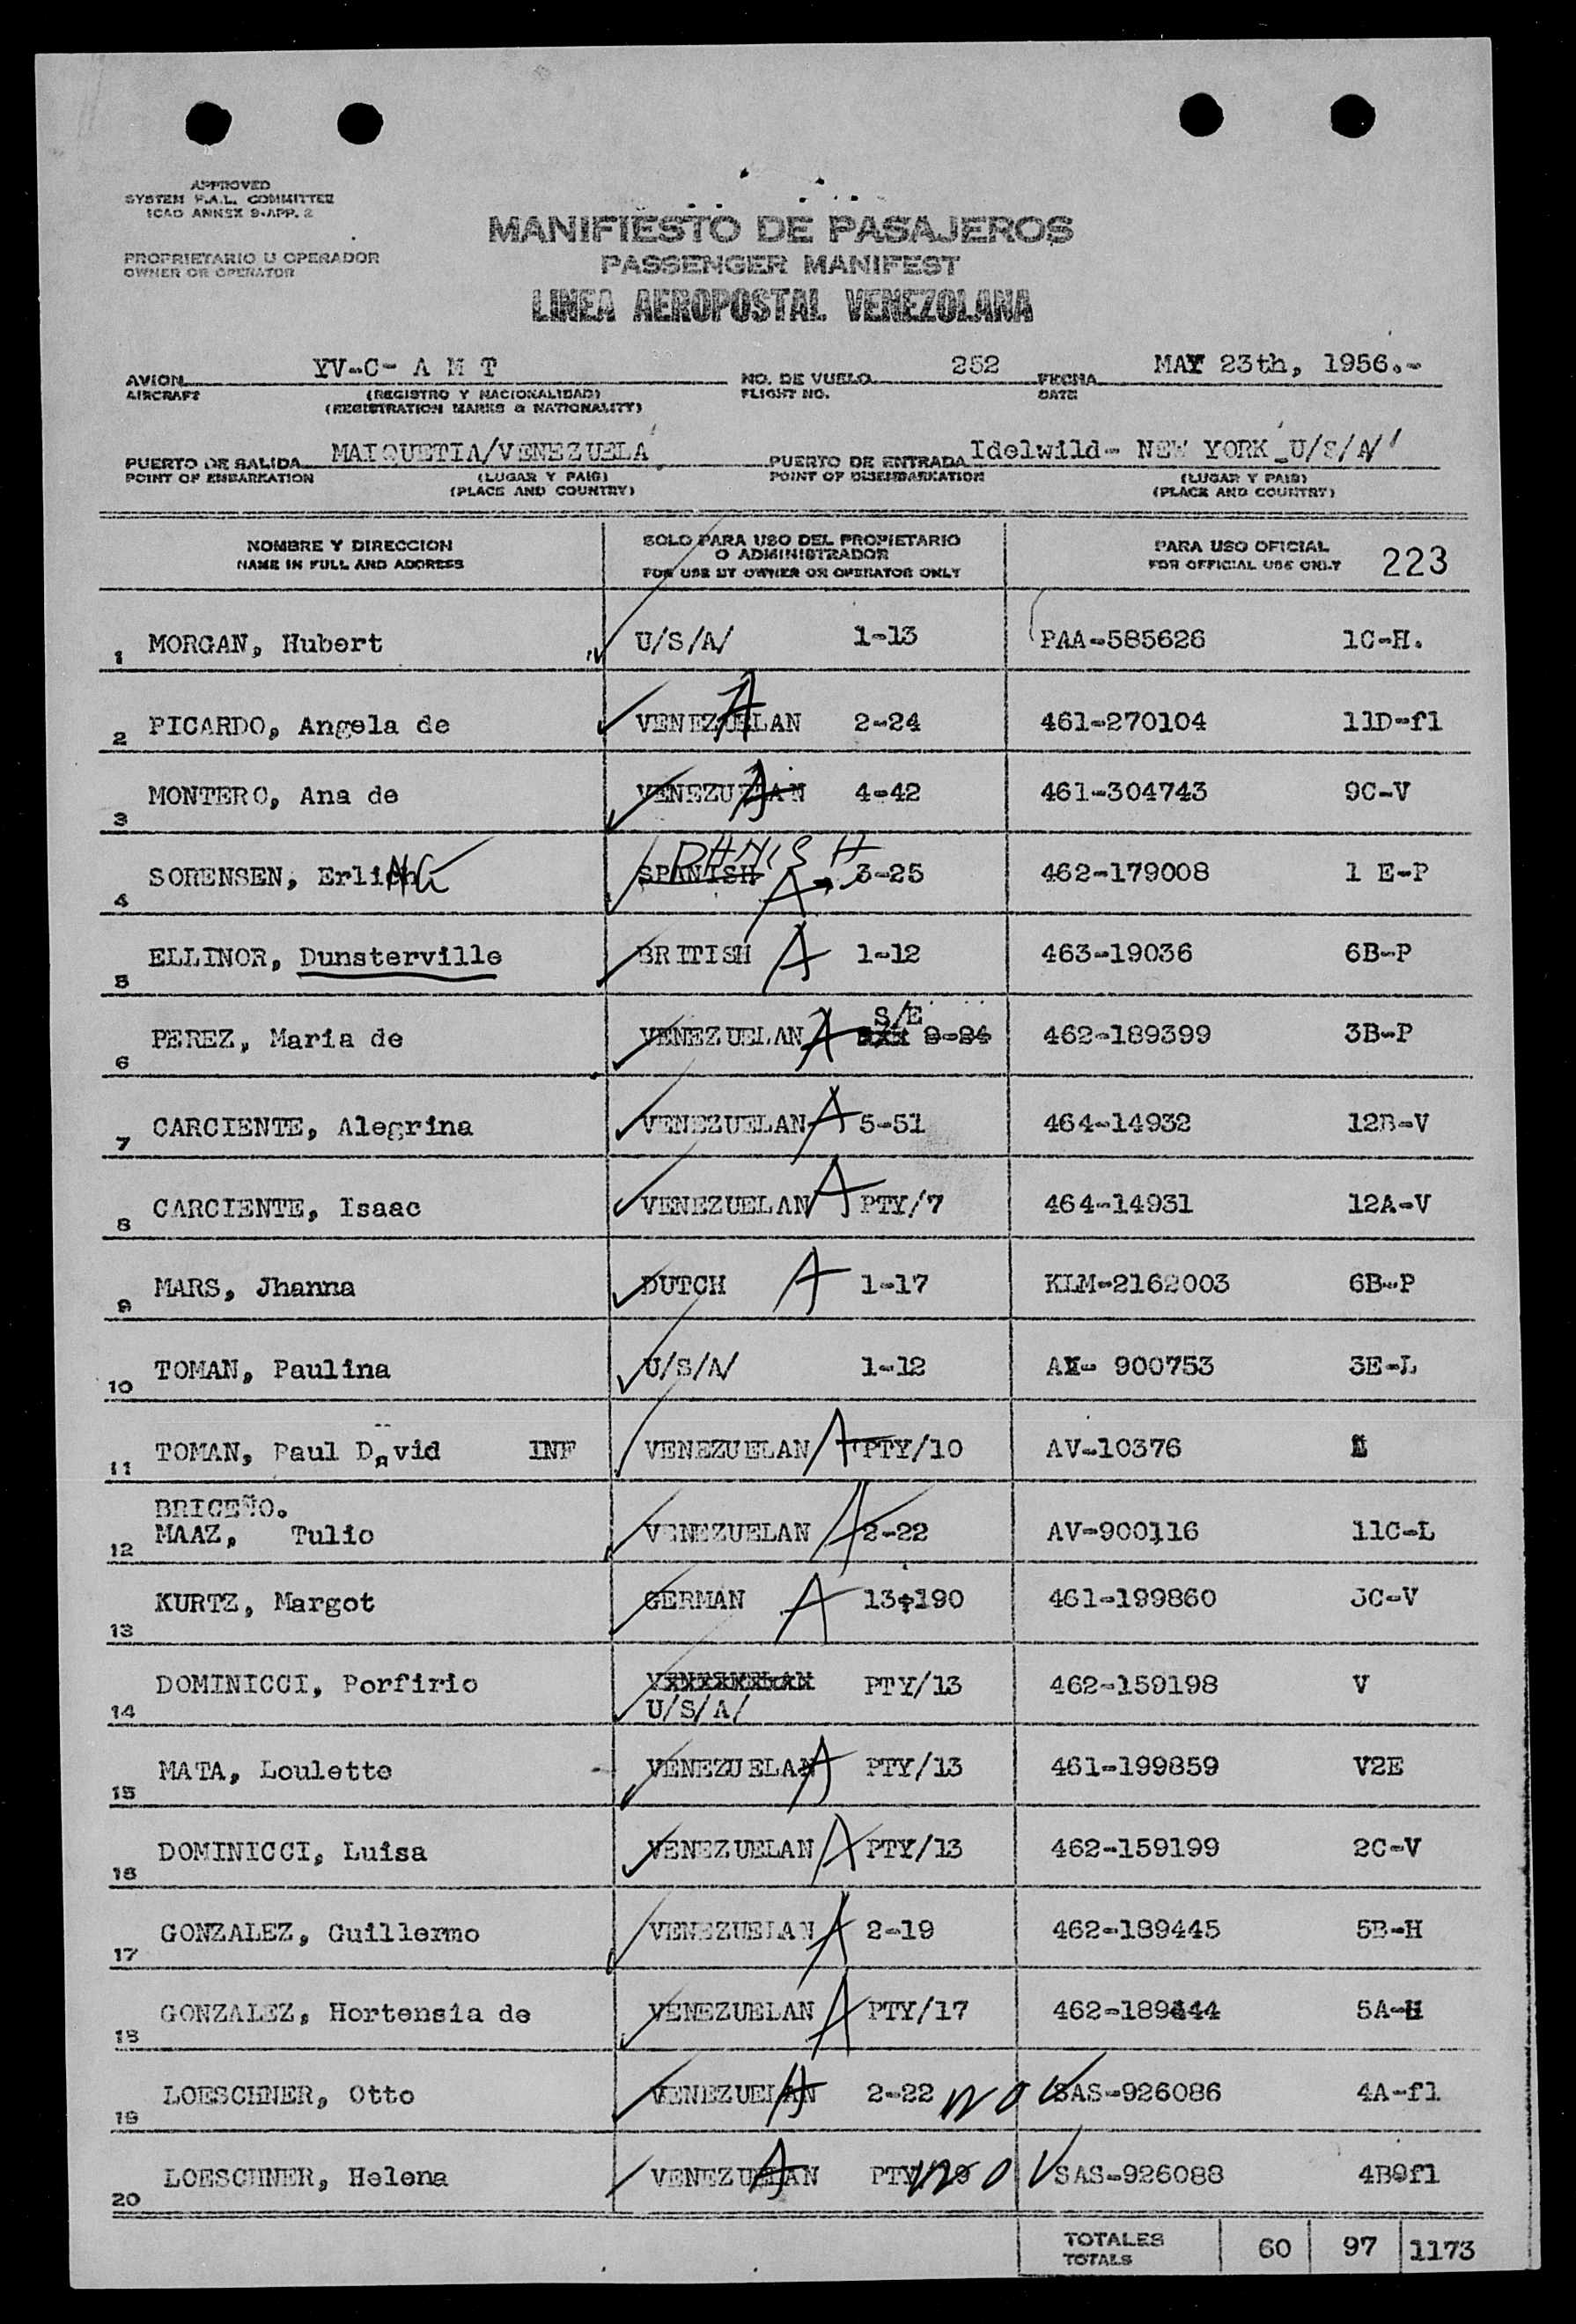 APPROVED
SYSTEM F.A.L. COMMITTEE
ICAO ANNEX 9-APP. 2
PROPRIETARIO U OPERADOR
OWNER OR OPERATOR
MANIFIESTO DE PASAJEROS
PASSENGER MANIFEST
LINEA AEROPOSTAL VENEZOLANA
AVION YV-C- A M T NO. DE VUELO 252 FECHA MAY 23th, 1956.-
AIRCRAFT (REGISTRO Y NACIONALIDAD) FLIGHT NO. DATE
(REGISTRATION MARKS & NATIONALITY)
PUERTO DE SALIDA MAIQUETIA/VENEZUELA PUERTO DE ENTRADA Idelwild- NEW YORK U/S/A/
POINT OF EMBARKATION (LUGAR Y PAIS) POINT OF DISEMBARKATION (LUGAR Y PAIS)
(PLACE AND COUNTRY) (PLACE AND COUNTRY)
NOMBRE Y DIRECCION SOLO PARA USO DEL PROPIETARIO PARA USO OFICIAL
NAME IN FULL AND ADDRESS O ADMINISTRADOR FOR OFFICIAL USE ONLY 223
FOR USE BY OWNER OR OPERATOR ONLY
1 MORGAN, Hubert U/S/A/ 1-13 PAA-585626 1C-H.
2 PICARDO, Angela de VENEZUELAN A 2-24 461-270104 11D-fl
3 MONTERO, Ana de VENEZUELAN A 4-42 461-304743 9C-V
DANISH
4 SORENSEN, Erling SPANISH A 3-25 462-179008 1 E-P
5 ELLINOR, Dunsterville BRITISH A 1-12 463-19036 6B-P
S/E
6 PEREZ, Maria de VENEZUELAN A 462-189399 3B-P
7 CARCIENTE, Alegrina VENEZUELAN A 5-51 464-14932 12B-V
8 CARCIENTE, Isaac VENEZUELAN A PTY/7 464-14931 12A-V
9 MARS, Jhanna DUTCH A 1-17 KLM-2162003 6B-P
10 TOMAN, Paulina U/S/A/ 1-12 900753 3E-L
11 TOMAN, Paul David INF VENEZUELAN A PTY/10 AV-10376
BRICEÑO.
12 MAAZ, Tulio VENEZUELAN A 2-22 AV-900116 11C-L
13 KURTZ, Margot GERMAN A 13-190 461-199860 3C-V
14 DOMINICCI, Porfirio VENEZUELAN PTY/13 462-159198 V
U/S/A/
15 MATA, Loulette VENEZUELAN A PTY/13 461-199859 V2E
16 DOMINICCI, Luisa VENEZUELAN A PTY/13 462-159199 2C-V
17 GONZALEZ, Guillermo VENEZUELAN A 2-19 462-189445 5B-H
18 GONZALEZ, Hortensia de VENEZUELAN A PTY/17 462-189444 5A-H
19 LOESCHNER, Otto VENEZUELAN A 2-22 SAS-926086 4A-fl
20 LOESCHNER, Helena VENEZUELAN A PTY/19 SAS-926088 4B9fl
TOTALES 60 97 1173
TOTALS